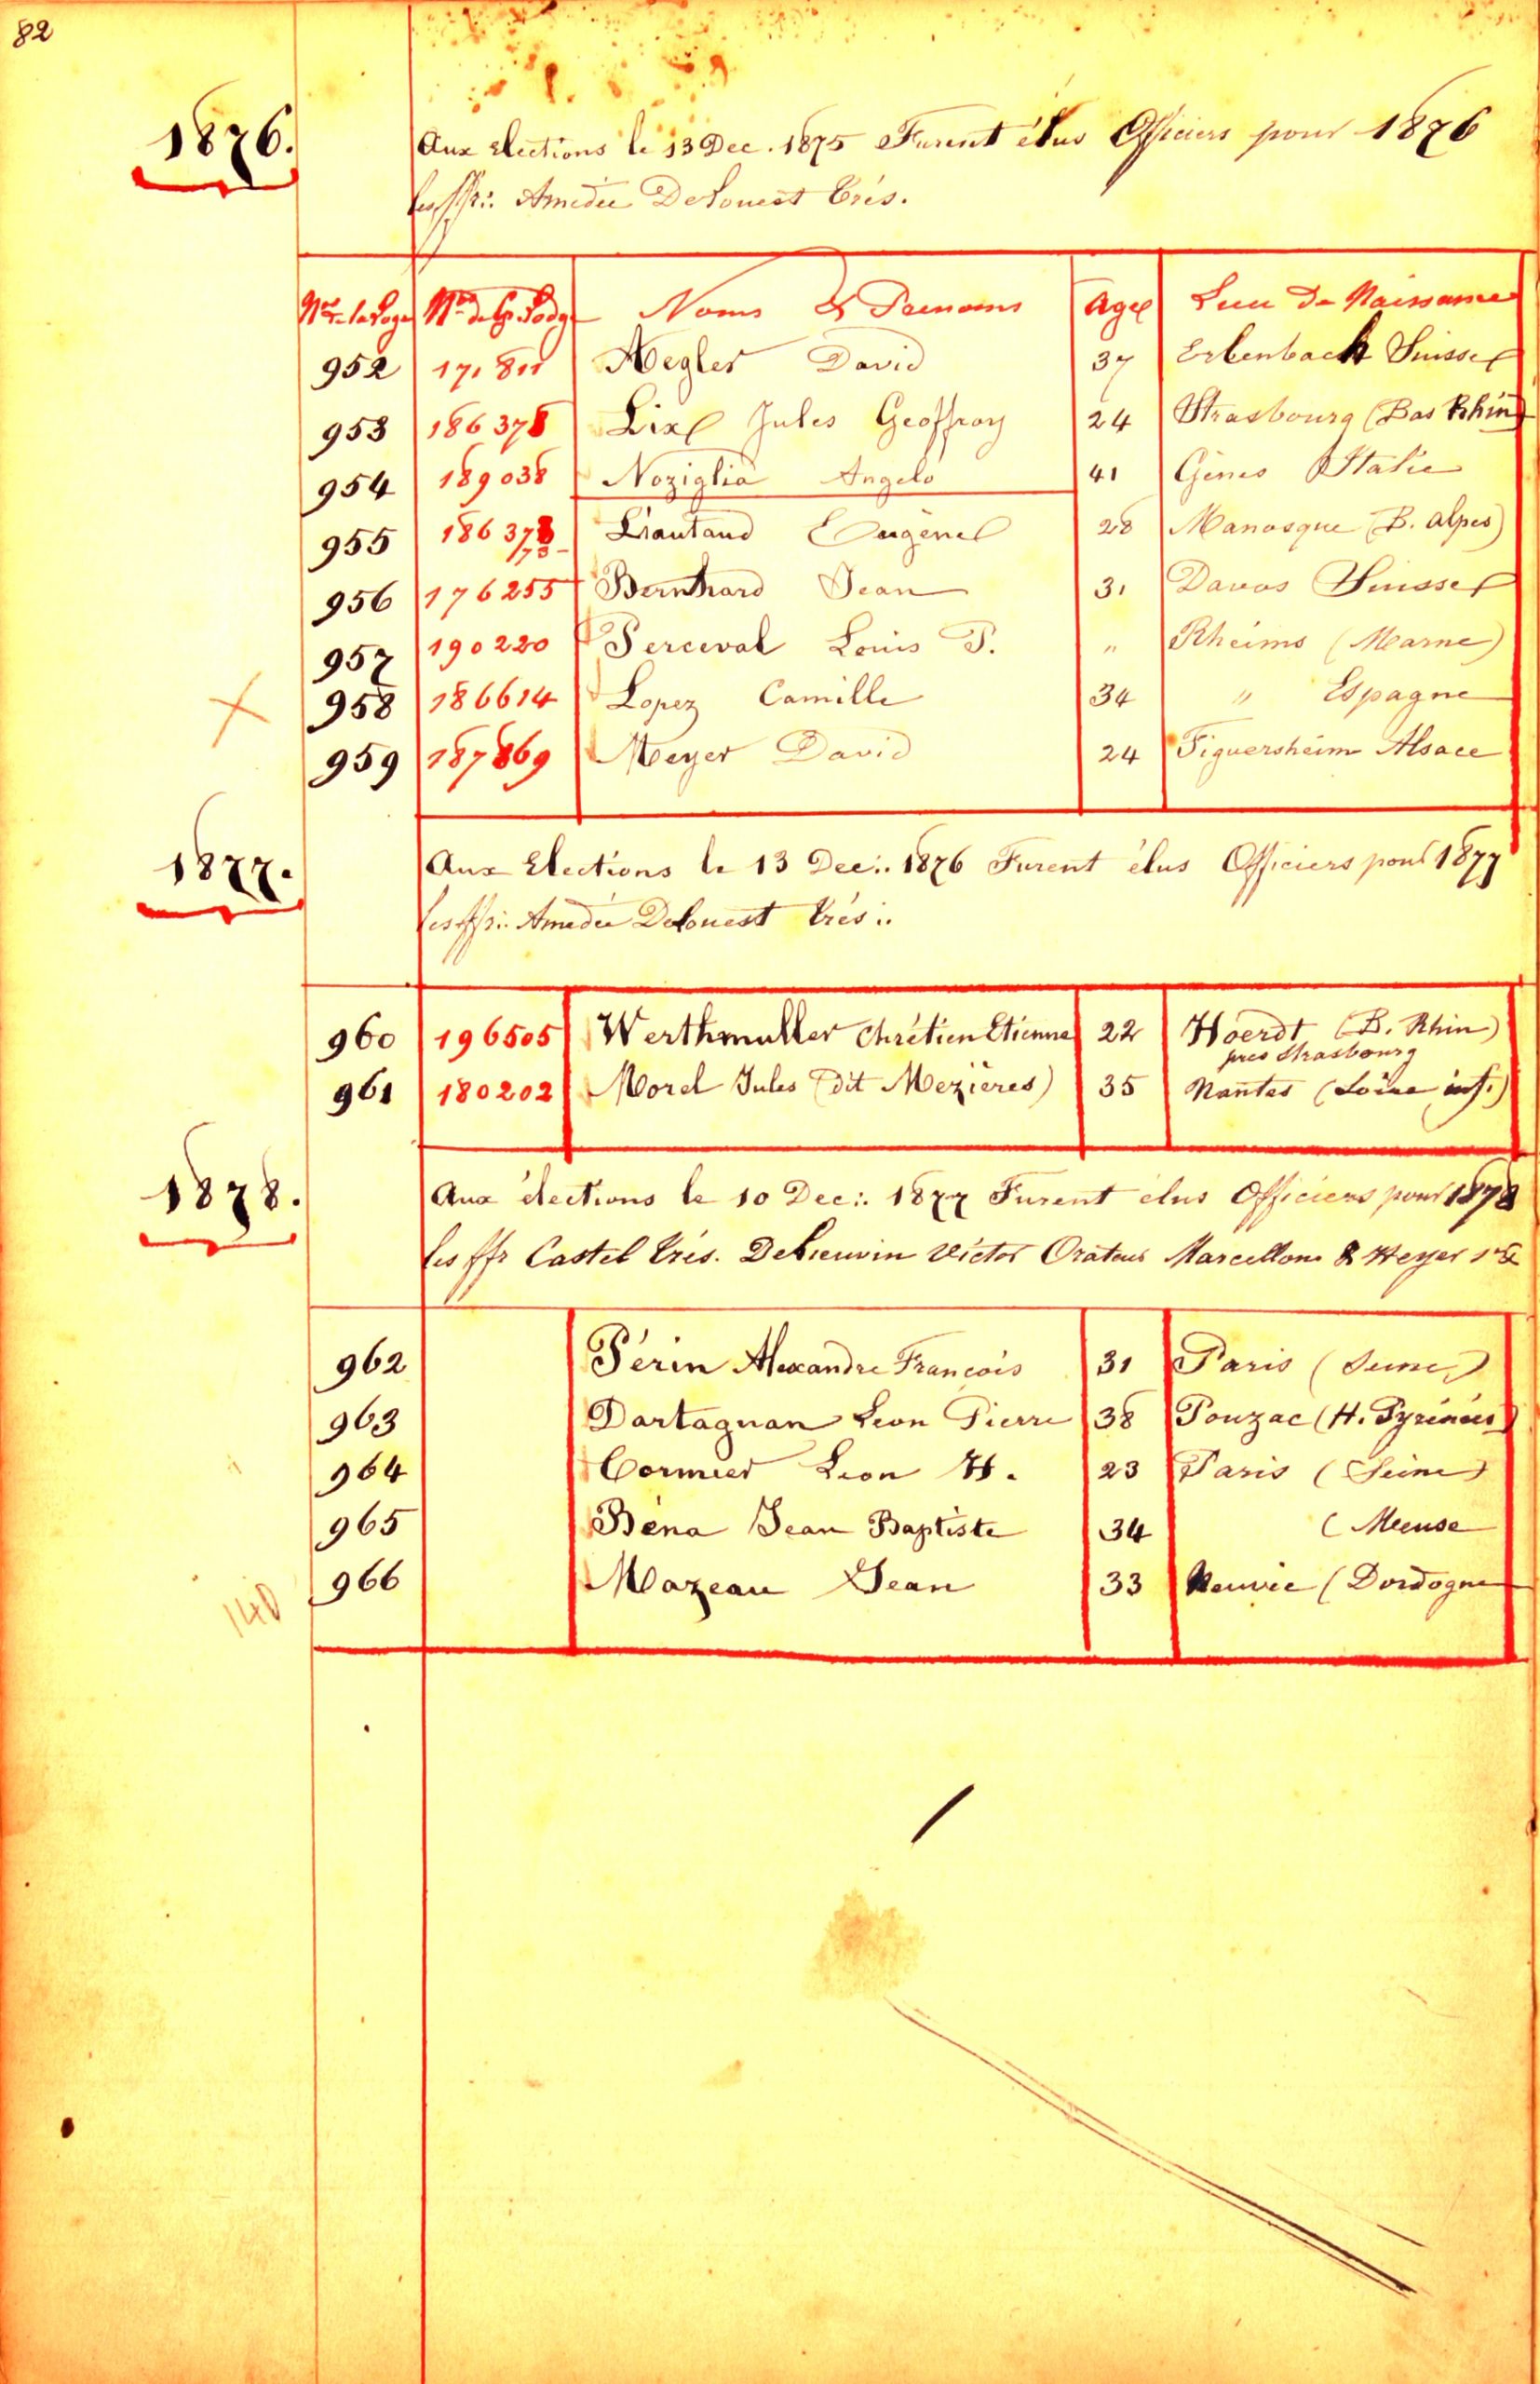 82
1876.
Aux Elections le 13 Dec. 1875 Furent élus Officiers pour 1876
les ffr:. Amédée Delouest Trés.
Nos de la Loge Nos de Gr. Lodge Noms & Prenoms Age Lieu De Naissance
952 David 37 Erlenbach Suisse
953 186 378 Lix Jules Geoffroy 24 Strasbourg (Bas Rhin)
954 189 038 Noziglia Angelo 41 Gènes Italie
955 Liautaud Eugène 28 Manosque (B. Alpes)
956 176255 Bernhard Jean 31 Davos Suisse
957 190220 Perceval Louis P. " Rheims (Marne)
958 186614 Lopez Camille 34 " Espagne
959 187869 Meyer David 24 Figuersheim Alsace
1877.
Aux Elections le 13 Dec:. 1876 Furent élus Officiers pour 1877
les ffr:. Amédée Delouest Trés:.
960 196505 Werthmuller Chrétien Etienne 22 Hoerdt (B. Rhin)
près Strasbourg
961 180202 Morel Jules (dit Mezières) 35 Nantes (Loire inf.)
1878.
Aux élections le 10 Dec:. 1877 Furent élus Officiers pour 1878
les ffr Castel Trés. Victor Orateur &
962 Périn Alexandre François 31 Paris (Seine)
963 Dartagnan Leon Pierre 38 Pouzac (H. Pyrénées)
964 Cormier Leon H. 23 Paris (Seine)
965 Béna Jean Baptiste 34 (Meuse
966 Mazeau Jean 33 Neuvic (Dordogne
140